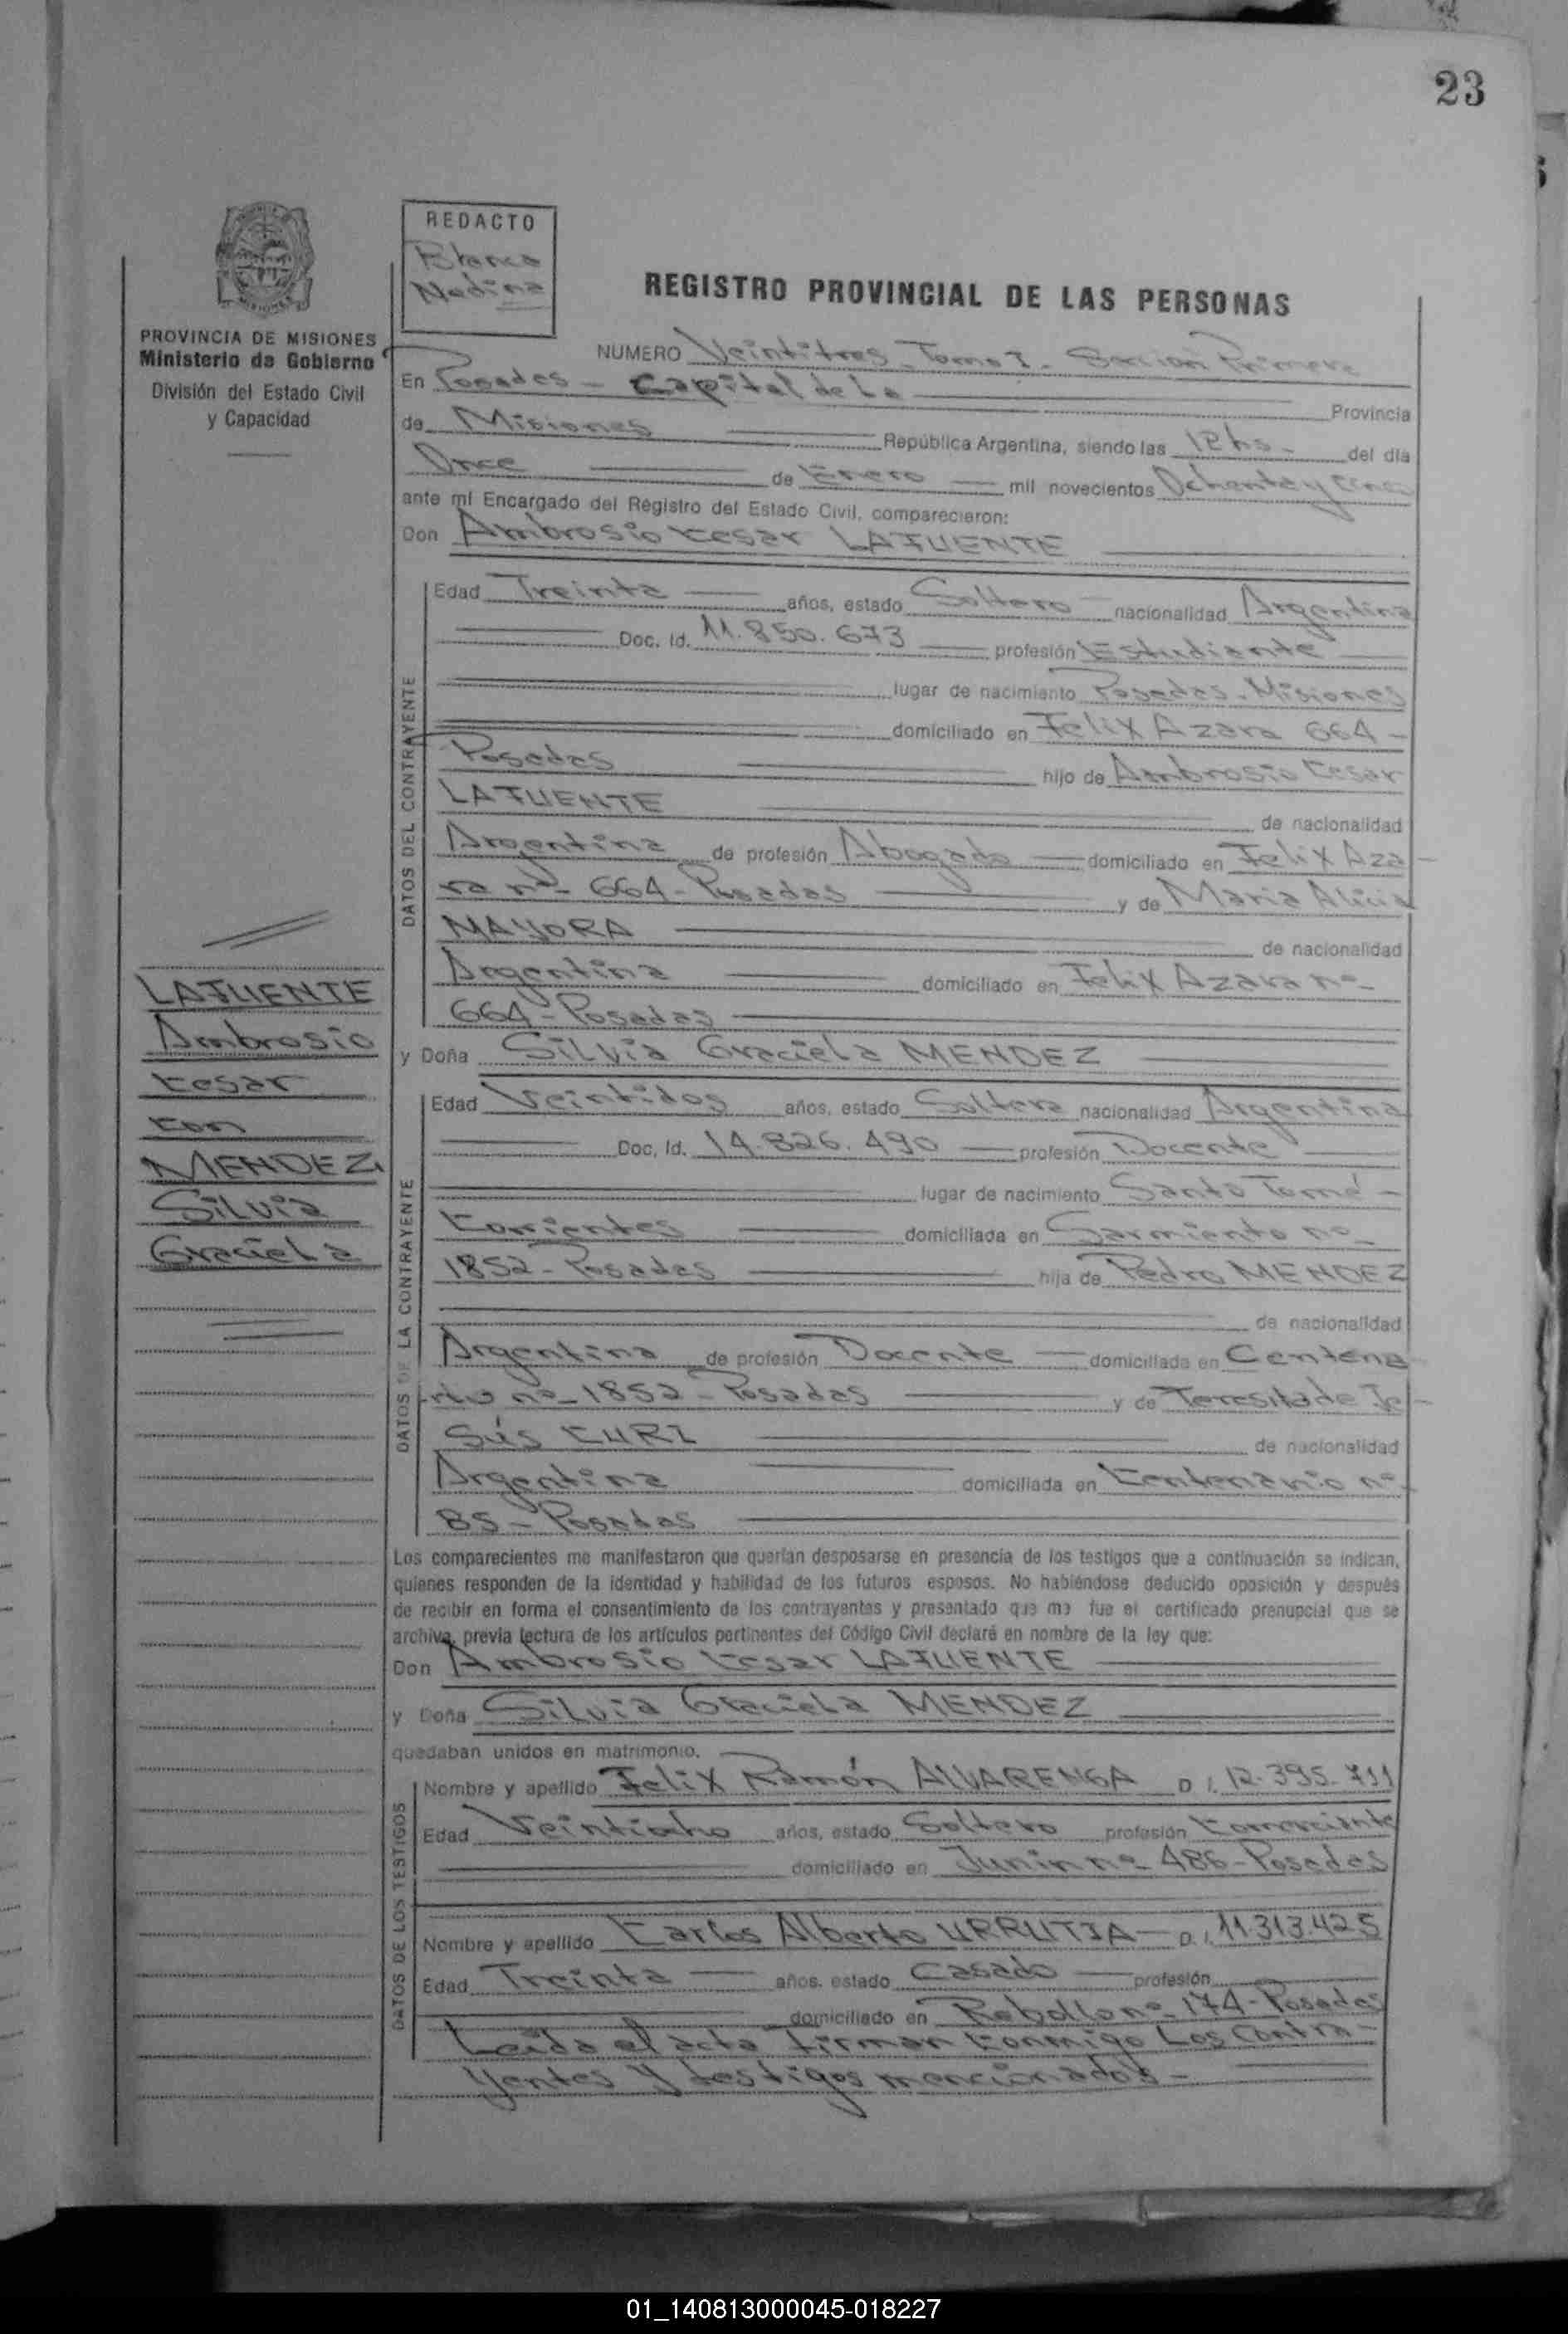 23
REDACTO
Blanca
Medina
REGISTRO PROVINCIAL DE LAS PERSONAS
PROVINCIA DE MISIONES
Ministerio de Gobierno
División del Estado Civil
y Capacidad
NUMERO Veintitres - Tomo I - Sección Primera
En Posadas - Capital de La Provincia
de Misiones República Argentina, siendo las 12 hs - del día
Once de Enero mil novecientos Ochenta y cinco
ante mí Encargado del Registro del Estado Civil, comparecieron:
Don Ambrosio Cesar LAFUENTE
DATOS DEL CONTRAYENTE
Edad Treinta años, estado Soltero nacionalidad Argentina
Doc. Id. 11.850.673 profesión Estudiante
lugar de nacimiento Posadas - Misiones
domiciliado en Felix Azara 664 -
Posadas hijo de Ambrosio Cesar
LAFUENTE de nacionalidad
Argentina de profesión Abogado domiciliado en Felix Aza-
ra nº 664 - Posadas y de Maria Alicia
MAYORA de nacionalidad
Argentina domiciliado en Felix Azara nº
664 - Posadas
y Doña Silvia Graciela MENDEZ
LAFUENTE
Ambrosio
Cesar
con
MENDEZ
Silvia
Graciela
DATOS DE LA CONTRAYENTE
Edad Veintidos años, estado Soltera nacionalidad Argentina
Doc. Id. 14.826.490 profesión Docente
lugar de nacimiento Santo Tomé -
Corrientes domiciliada en Sarmiento nº
1852 - Posadas hija de Pedro MENDEZ
de nacionalidad
Argentina de profesión Docente domiciliada en Centena-
rio nº 1852 - Posadas y de Teresita de Je-
sús CURI de nacionalidad
Argentina domiciliada en Centenario nº
85 - Posadas
Los comparecientes me manifestaron que querían desposarse en presencia de los testigos que a continuación se indican,
quienes responden de la identidad y habilidad de los futuros esposos. No habiéndose deducido oposición y después
de recibir en forma el consentimiento de los contrayentes y presentado que me fue el certificado prenupcial que se
archiva, previa lectura de los artículos pertinentes del Código Civil declaré en nombre de la ley que:
Don Ambrosio Cesar LAFUENTE
y Doña Silvia Graciela MENDEZ
quedaban unidos en matrimonio.
DATOS DE LOS TESTIGOS
Nombre y apellido Felix Ramón ALVARENGA D.I. 12.395.711
Edad Veintiocho años, estado Soltero profesión Comerciante
domiciliado en Junin nº 486 - Posadas
Nombre y apellido Carlos Alberto URRUTIA - D.I. 11.313.425
Edad Treinta años, estado Casado profesión
domiciliado en Rebollo nº 174 - Posadas
Leída el acta firman conmigo Los Contra-
yentes y testigos mencionados -
01_140813000045-018227